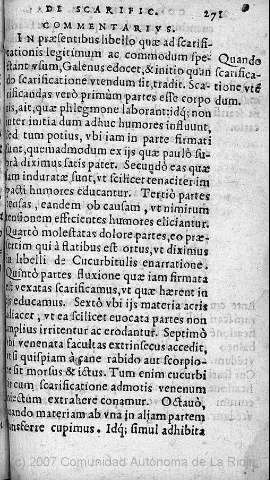 DE SCARIFIC. 271
COMMENTARIVS.
IN præsentibus libello quæ ad scarifi-
cationis legitimum ac commodum spe- Quando
ctant vsum, Galenus edocet, & initio quan scarifica-
do scarificatione vtendum sit, tradit. Sca- tione vtē
rificandas verò primùm partes esse corpo dum.
ris, ait, quæ phlegmone laborant: idq; non
inter initia dum adhuc humores influunt,
sed tum potius, vbi iam in parte firmati
sunt, quemadmodum ex ijs quæ paulò su-
prà diximus satis patet. Secundò eas quæ
iam induratæ sunt, vt scilicet tenaciter im
pacti humores educantur. Tertiò partes
tensas, eandem ob causam, vt nimirum
tensionem efficientes humores eliciantur.
Quartò molestatas dolore partes, eo præ-
sertim qui à flatibus est ortus, vt diximus
in libelli de Cucurbitulis enarratione.
Quintò partes fluxione quæ iam firmata
est vexatas scarificamus, vt quæ hærent in
ijs educamus. Sextò vbi ijs materia acris
adiacet, vt ea scilicet euocata partes non
amplius irritentur ac erodantur. Septimò
vbi venenata facultas extrinsecus accedit,
vt si quispiam à cane rabido aut scorpio-
ne sit morsus & ictus. Tum enim cucurbi
tis cum scarificatione admotis venenum
iniectum extrahere conamur. Octauò,
quando materiam ab vna in aliam partem
transferre cupimus. Idq; simul adhibita
(c) 2007 Comunidad Autónoma de La Rioja